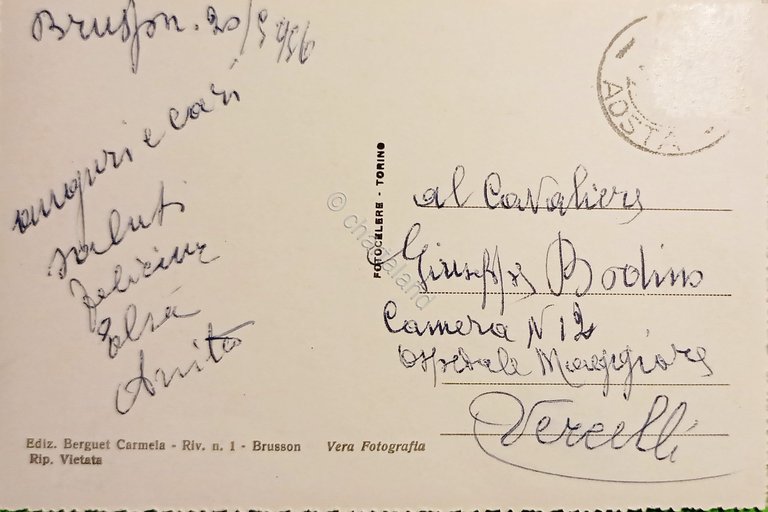 Brusson. 20/5 956
auguri e cari
saluti
Felicina
Elsa
Anita
al Cavaliere
Giuseppe Bodino
Camera N 12
Ospedale Maggiore
Vercelli
FOTOCELERE - TORINO
AOSTA
© chazaland
Ediz. Berguet Carmela - Riv. n. 1 - Brusson Vera Fotografia
Rip. Vietata